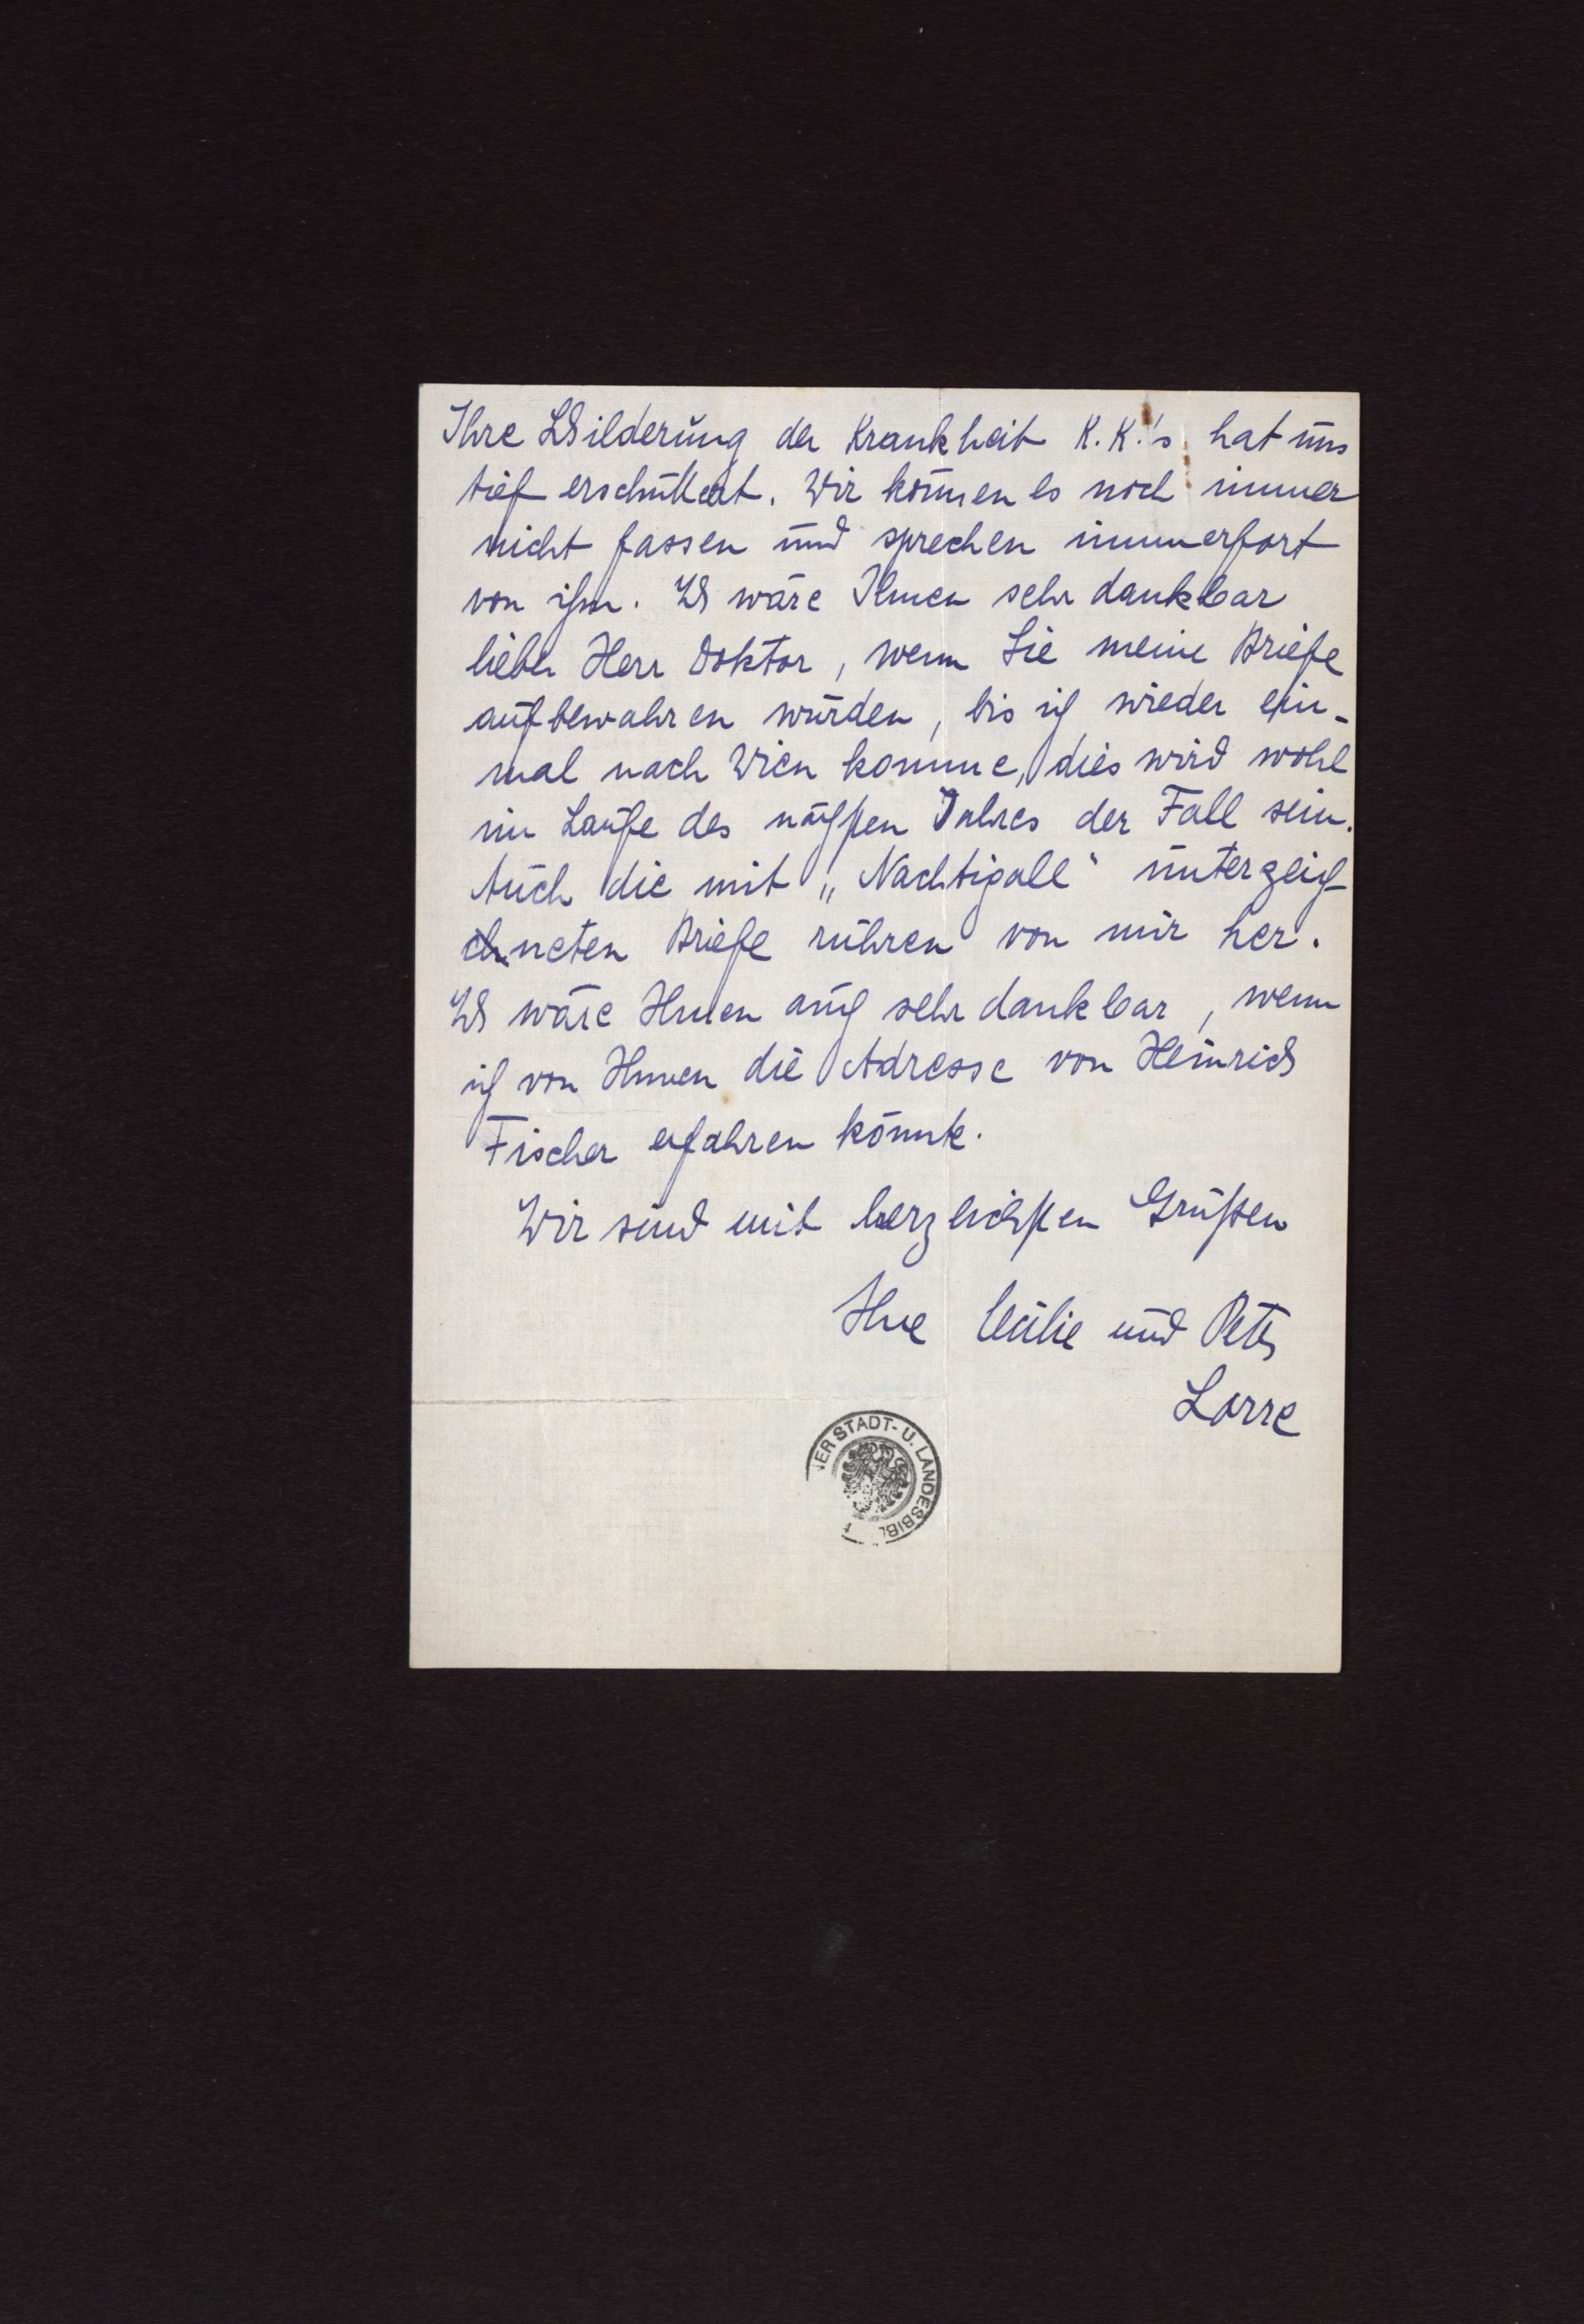 Ihre Schilderung der Krankheit K.K.'s hat uns
tief erschüttert. Wir können es noch immer
nicht fassen und sprechen immerfort
von ihm. Ich wäre Ihnen sehr dankbar
lieber Herr Doktor, wenn Sie meine Briefe
aufbewahren würden, bis ich wieder ein-
mal nach Wien komme, dies wird wohl
im Laufe des nächsten Jahres der Fall sein.
Auch die mit „Nachtigall“ unterzeich
neten Briefe rühren von mir her.
Ich wäre Ihnen auch sehr dankbar, wenn
ich von Ihnen die Adresse von Heinrich
Fischer erfahren könnte.
Wir sind mit herzlichsten Grüßen
Ihre Cäcilie und Peter
Lorre
ER STADT- U. LANDESBIBL